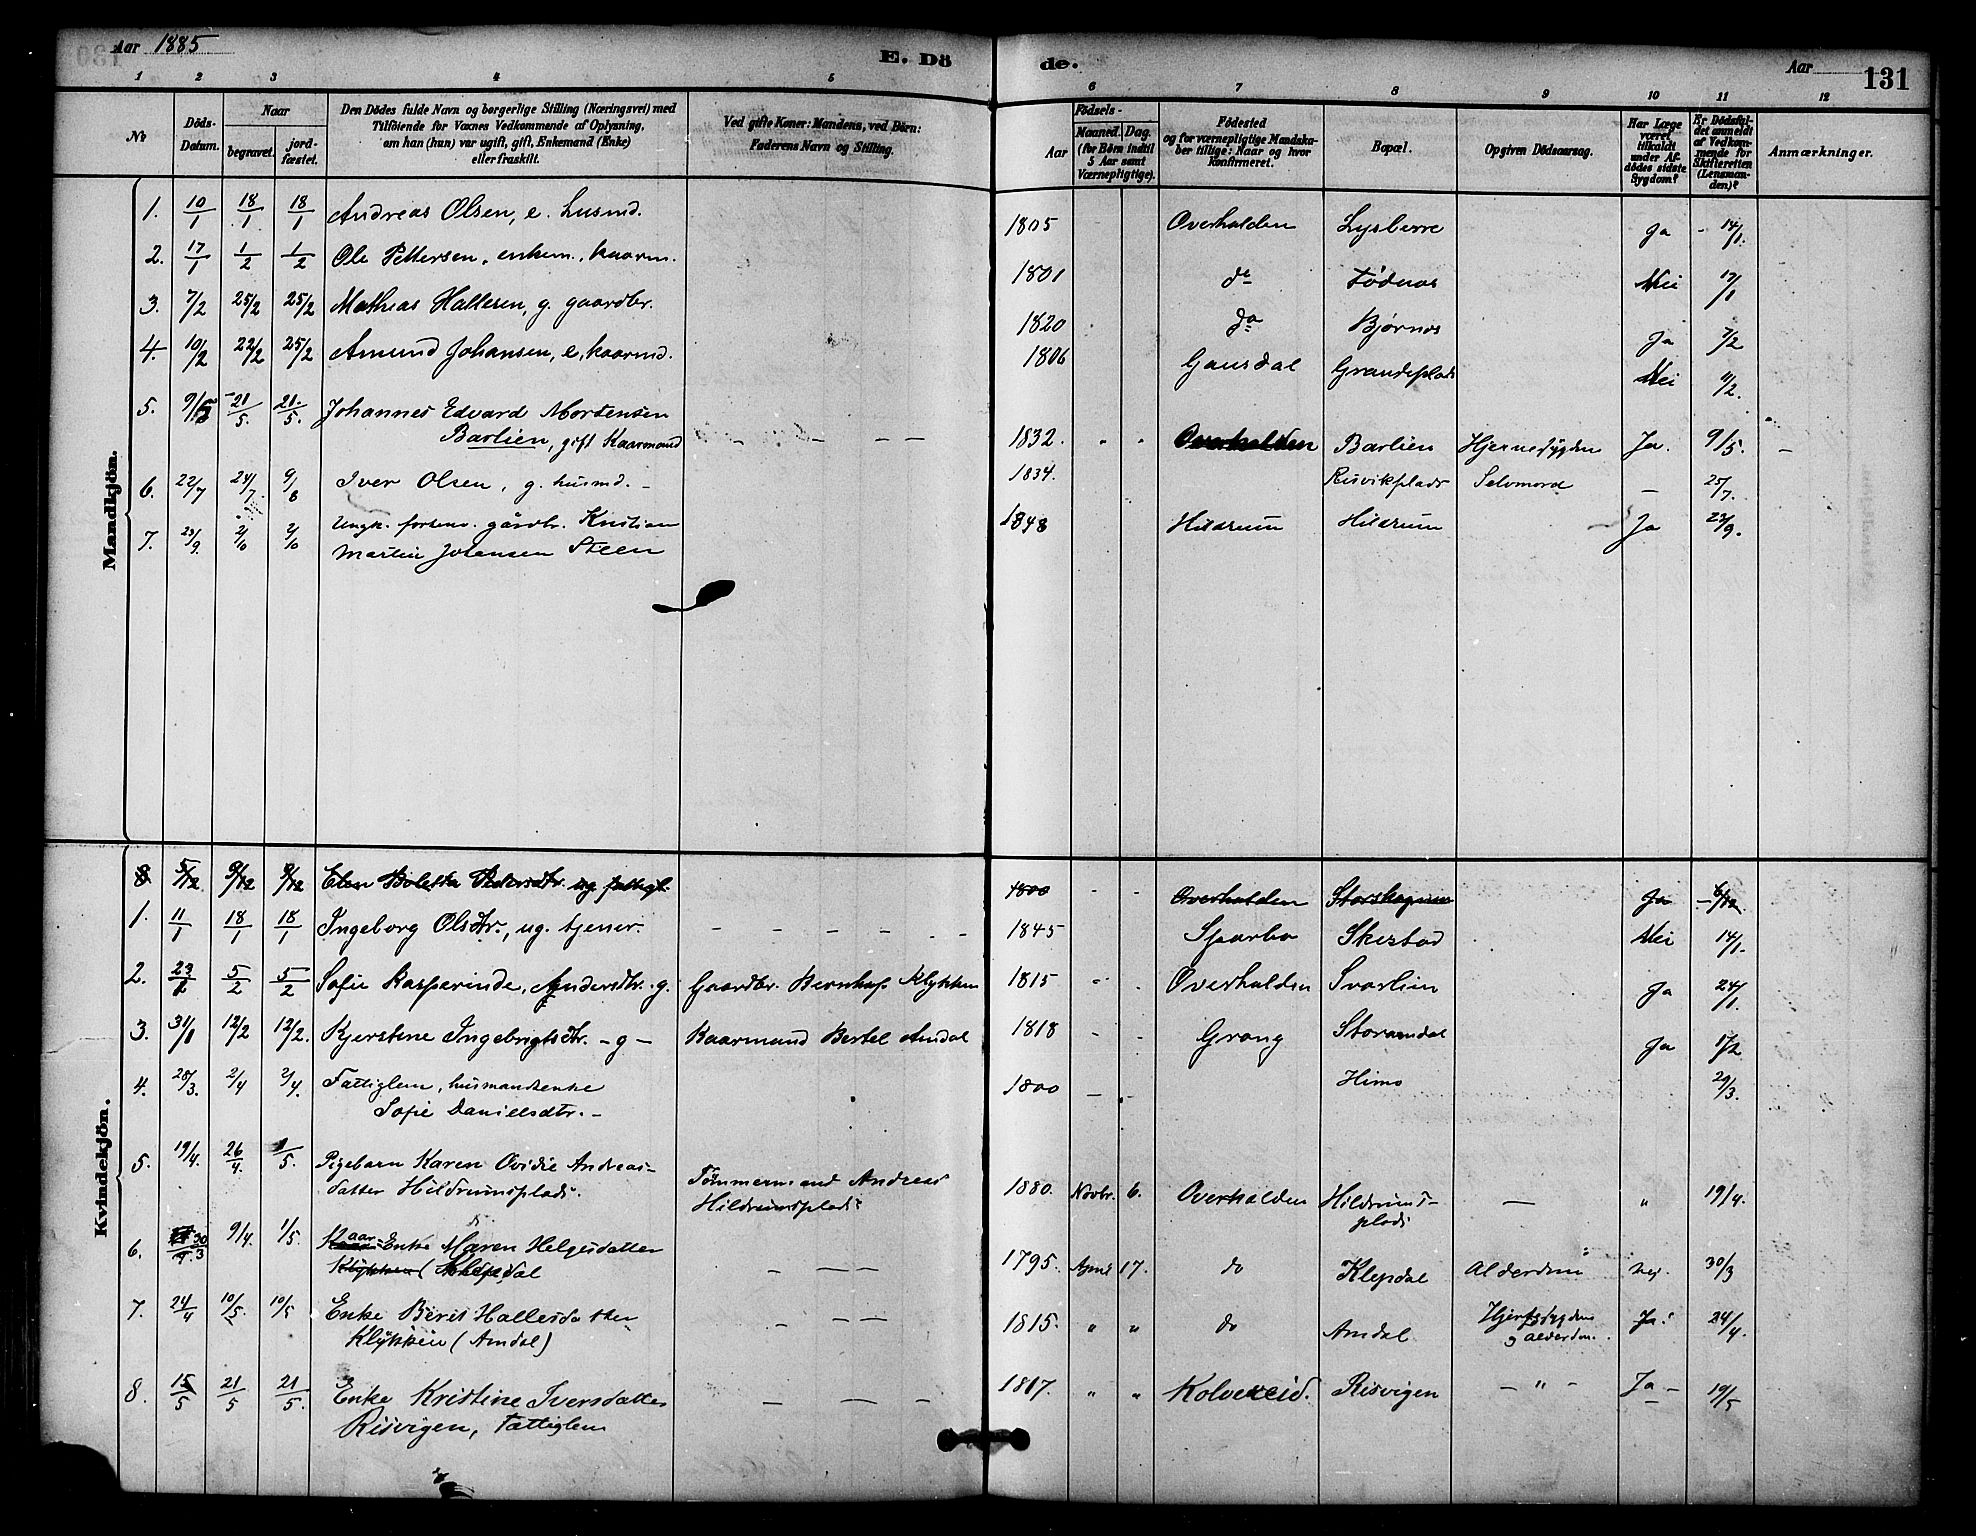 Aar 1885 E. Dö de. Aar 131
1 2 3 4 5 6 7 8 9 10 11 12
No
Döds-
Datum.
Naar
begravet.
jord-
fæstet.
Den Dödes fulde Navn og borgerlige Stilling (Næringsvei) med
Tilföiende for Voxnes Vedkommende af Oplysning,
om han (hun) var ugift, gift, Enkemand (Enke)
eller fraskilt.
Ved gifte Koner: Mandens, ved Börn:
Faderens Navn og Stilling.
Födsels-
Aar
Maaned. Dag.
(for Börn indtil
5 Aar samt
Værnepligtige).
Födested
og for værnepligtige Mandska-
ber tillige: Naar og hvor
konfirmeret.
Bopæl.
Opgiven Dödsaarsag.
Har Læge
været
tilkaldt
under Af-
dödes sidste
Sygdom?
Er Dödsfal-
det anmeldt
af Vedkom-
mende for
Skifteretten
(Lensman-
den)?
Anmærkninger.
Mandkjön.
1. 10/1 18/1 18/1 Andreas Olsen, e. husmd. 1805 Overhalden Lysberre Ja 14/1.
2. 17/1 1/2 1/2 Ole Pettersen, enkem., kaarm. 1801 do Fødnes Nei 17/1
3. 7/2 25/2 25/2 Mathias Hallesen, g. gaardbr. 1820 do Bjørnes Ja 7/2
4. 10/2 22/2 25/2 Amund Johansen, e. kaarmd. 1806 Gausdal Grandeplads Nei 11/2.
5. 9/5 21/5. 21/5. Johannes Edvard Mortensen
Barlien, gift Kaarmand 1832. Overhalden Barlien Hjernesygdom Ja. 9/5.
6. 22/7 24/7. 9/8 Iver Olsen, g. husmd. 1834. Risvikplads Selvmord 25/7.
7. 23/9. 2/10 2/10 Ungk. forhenv. gårdbr. Kristian
Martin Johansen Steen 1848 Hildrum Hildrum Ja 23/9.
Kvindekjön.
8 5/12 9/12 9/12 Elen Boletta Pedersdtr. ug fattigl. 1800 Overhalden Ja 6/12
1. 11/1 18/1 18/1 Ingeborg Olsdtr., ug. tjener. 1845 Sparbo Skestad Nei 14/1.
2. 23/1 5/2 5/2 Sofie Kasperinde Andersdtr. g. Gaardbr. Bernhof Klykken 1815 Overhalden Svarlien Ja 24/1.
3. 31/1 12/2 12/2. Kjerstine Ingebrigtsdtr. - g - Kaarmand Bertel Amdal 1818 Grong Storamdal Ja 1/2.
4. 28/3. 2/4 2/4. Fattiglem, husmandsenke
Sofie Danielsdtr. 1800 Himo 29/3.
5. 19/4. 26/4. 1/5. Pigebarn Karen Ovidie Andreas-
datter Hildrumsplads.
Tømmermand Andreas
Hildrumsplads
1880. Novbr. 6. Overhalden Hildrums-
plads
— " 19/4.
6. 30/3 9/4. 1/5. Kaar-Enke Maren Helgesdatter
Klykken (Klepdal 1795. April 17. do Klepdal Alderdom nej. 30/3
7. 24/4 10/5. 10/5 Enke Berit Hallesdatter
Klykken (Amdal) 1815. " " do Amdal Hjertesygdom
og alderdom. Ja. 24/4.
8. 15/5 21/5 21/5. Enke Kristine Iversdatter
Risvigen, Fattiglem 1817. " " Kolvereid. Risvigen — " — Ja - 19/5